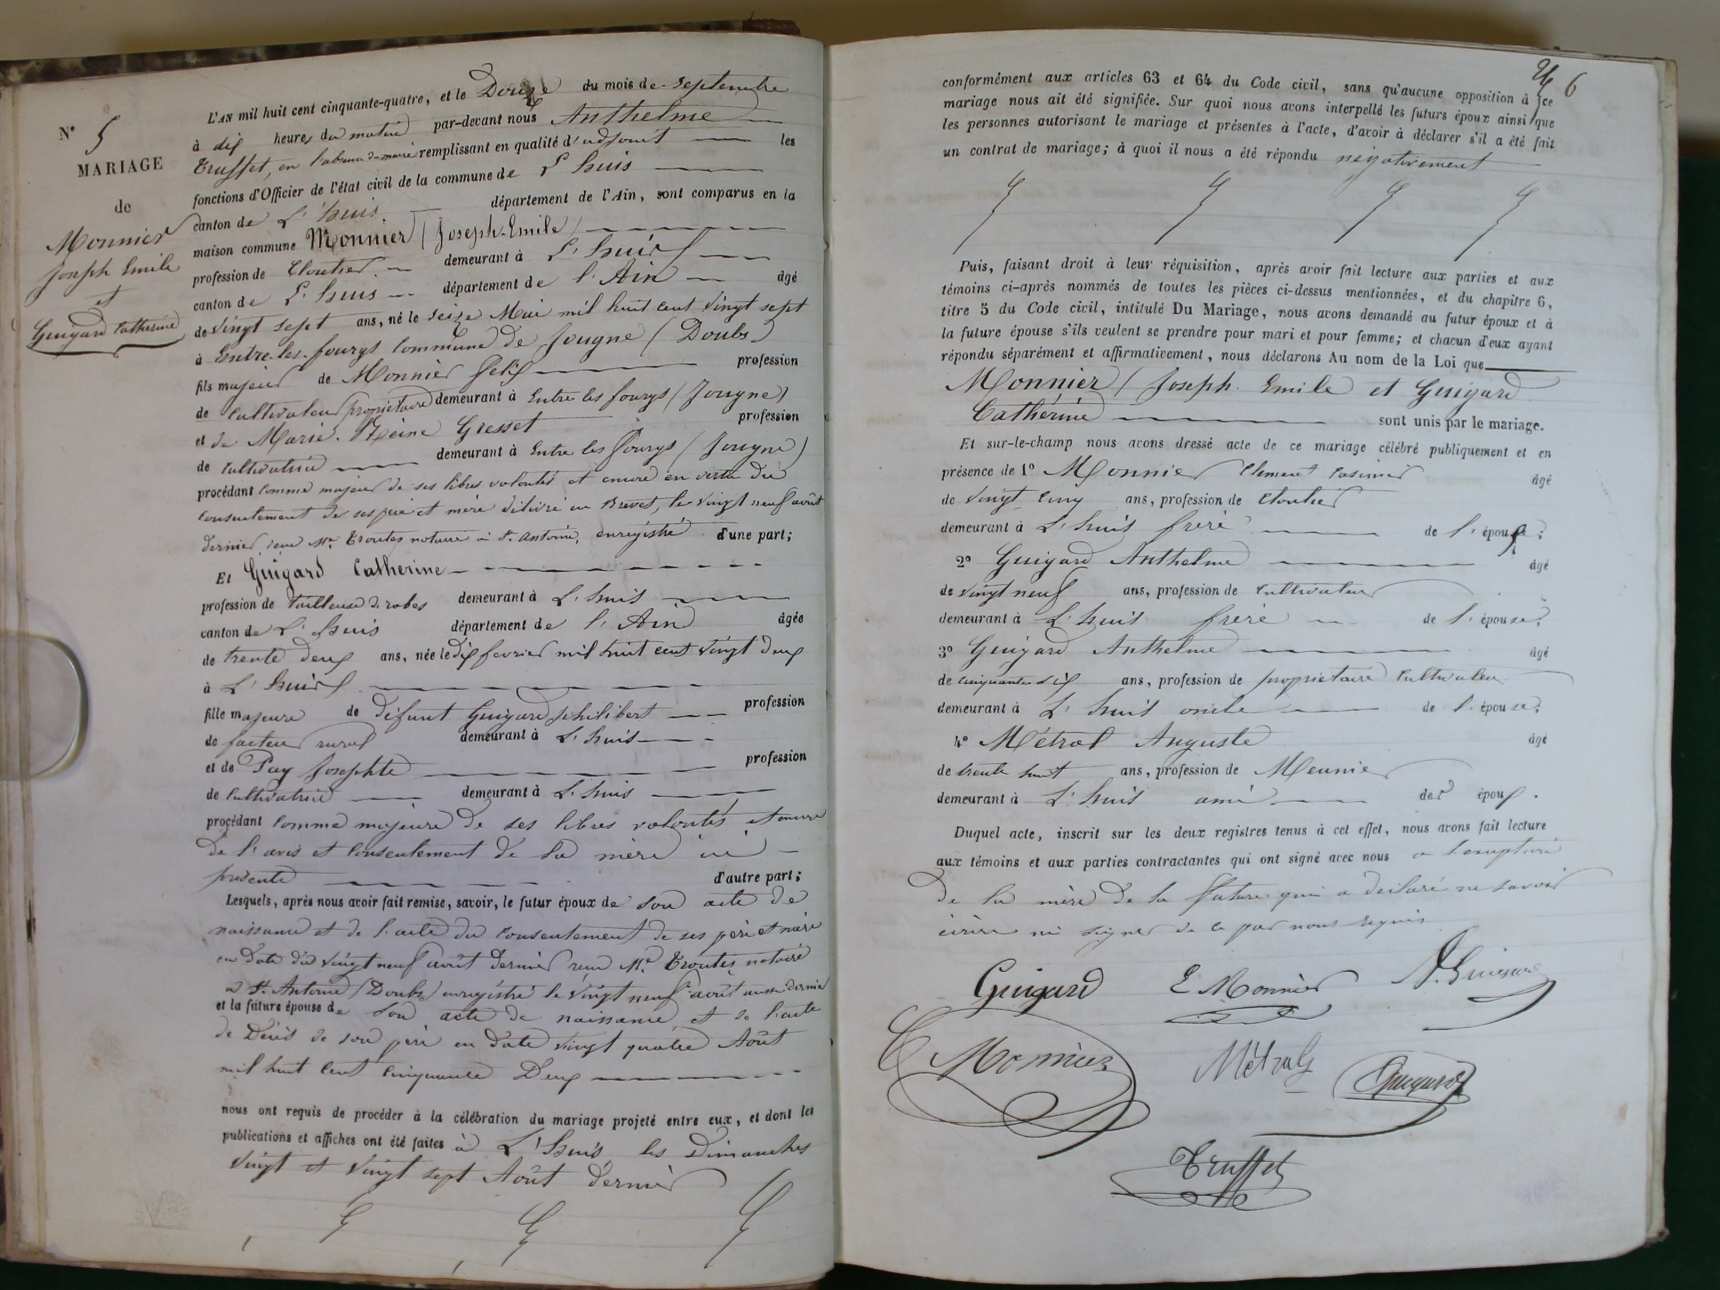 N° 5
MARIAGE
de
Monnier
Joseph Emile
et
Guigard Catherine
L'AN mil huit cent cinquante-quatre, et le Douze du mois de Septembre
à dix heures du matin par-devant nous Anthelme
Truffet, en l'absence du maire remplissant en qualité d'adjoint les
fonctions d'Officier de l'état civil de la commune de L'huis
canton de L'huis département de l'Ain, sont comparus en la
maison commune Monnier (Joseph-Emile)
profession de Cloutier demeurant à L'huis
canton de L'huis département de l'Ain âgé
de Vingt sept ans, né le seize Mai mil huit cent vingt sept
à Entre-les-fourgs commune de Jougne (Doubs)
fils majeur de Monnier Felix profession
de Cultivateur propriétaire demeurant à Entre les fourgs (Jougne)
et de Marie-Reine Gresset profession
de Cultivatrice demeurant à Entre les fourgs (Jougne)
procédant comme majeur de ses libres volontés et encore en vertu du
consentement de ses père et mère délivré en Brevet, le vingt neuf août
dernier, reçu Me Troutes notaire à St. Antoine, enregistré d'une part;
Et Guigard Catherine
profession de tailleuse de robes demeurant à L'huis
canton de L'huis département de l'Ain âgée
de trente deux ans, née le dix fevrier mil huit cent vingt deux
à L'huis
fille majeure de défunt Guigard philibert profession
de facteur rural demeurant à L'huis
et de Puy Josephte profession
de Cultivatrice demeurant à L'huis
procédant comme majeure de ses libres volontés et encore
de l'avis et consentement de sa mère ici
présente d'autre part;
Lesquels, après nous avoir fait remise, savoir, le futur époux de son acte de
naissance et de l'acte du consentement de ses père et mère
en date du vingt neuf août dernier reçu Me. Troutes notaire
à St. Antoine (Doubs) enregistré le vingt neuf août aussi dernier
et la future épouse de son acte de naissance et de l'acte
de Décès de son père en date vingt quatre Août
mil huit cent cinquante Deux
nous ont requis de procéder à la célébration du mariage projeté entre eux, et dont les
publications et affiches ont été faites à L'huis les Dimanches
vingt et vingt sept Août dernier
6
conformément aux articles 63 et 64 du Code civil, sans qu'aucune opposition à ce
mariage nous ait été signifiée. Sur quoi nous avons interpellé les futurs époux ainsi que
les personnes autorisant le mariage et présentes à l'acte, d'avoir à déclarer s'il a été fait
un contrat de mariage; à quoi il nous a été répondu négativement
Puis, faisant droit à leur réquisition, après avoir fait lecture aux parties et aux
témoins ci-après nommés de toutes les pièces ci-dessus mentionnées, et du chapitre 6,
titre 5 du Code civil, intitulé Du Mariage, nous avons demandé au futur époux et à
la future épouse s'ils veulent se prendre pour mari et pour femme; et chacun d'eux ayant
répondu séparément et affirmativement, nous déclarons Au nom de la Loi que
Monnier (Joseph-Emile et Guigard
Cathérine sont unis par le mariage.
Et sur-le-champ nous avons dressé acte de ce mariage célébré publiquement et en
présence de 1° Monnier Clement Casimir âgé
de vingt cinq ans, profession de Cloutier
demeurant à L'huis frère de l'époux;
2° Guigard Anthelme âgé
de vingt neuf ans, profession de Cultivateur
demeurant à L'huis frère de l'épouse;
3° Guigard Anthelme âgé
de cinquante six ans, profession de propriétaire Cultivateur
demeurant à L'huis oncle de l'épouse;
4° Métral Auguste âgé
de trente huit ans, profession de Meunier
demeurant à L'huis ami des époux.
Duquel acte, inscrit sur les deux registres tenus à cet effet, nous avons fait lecture
aux témoins et aux parties contractantes qui ont signé avec nous à l'exception
de la mère de la future qui a declaré ne savoir
écrire ni signer de ce par nous requis
Guigard E Monnier A. Guigard
C Monnier Métral Guigard
Truffet